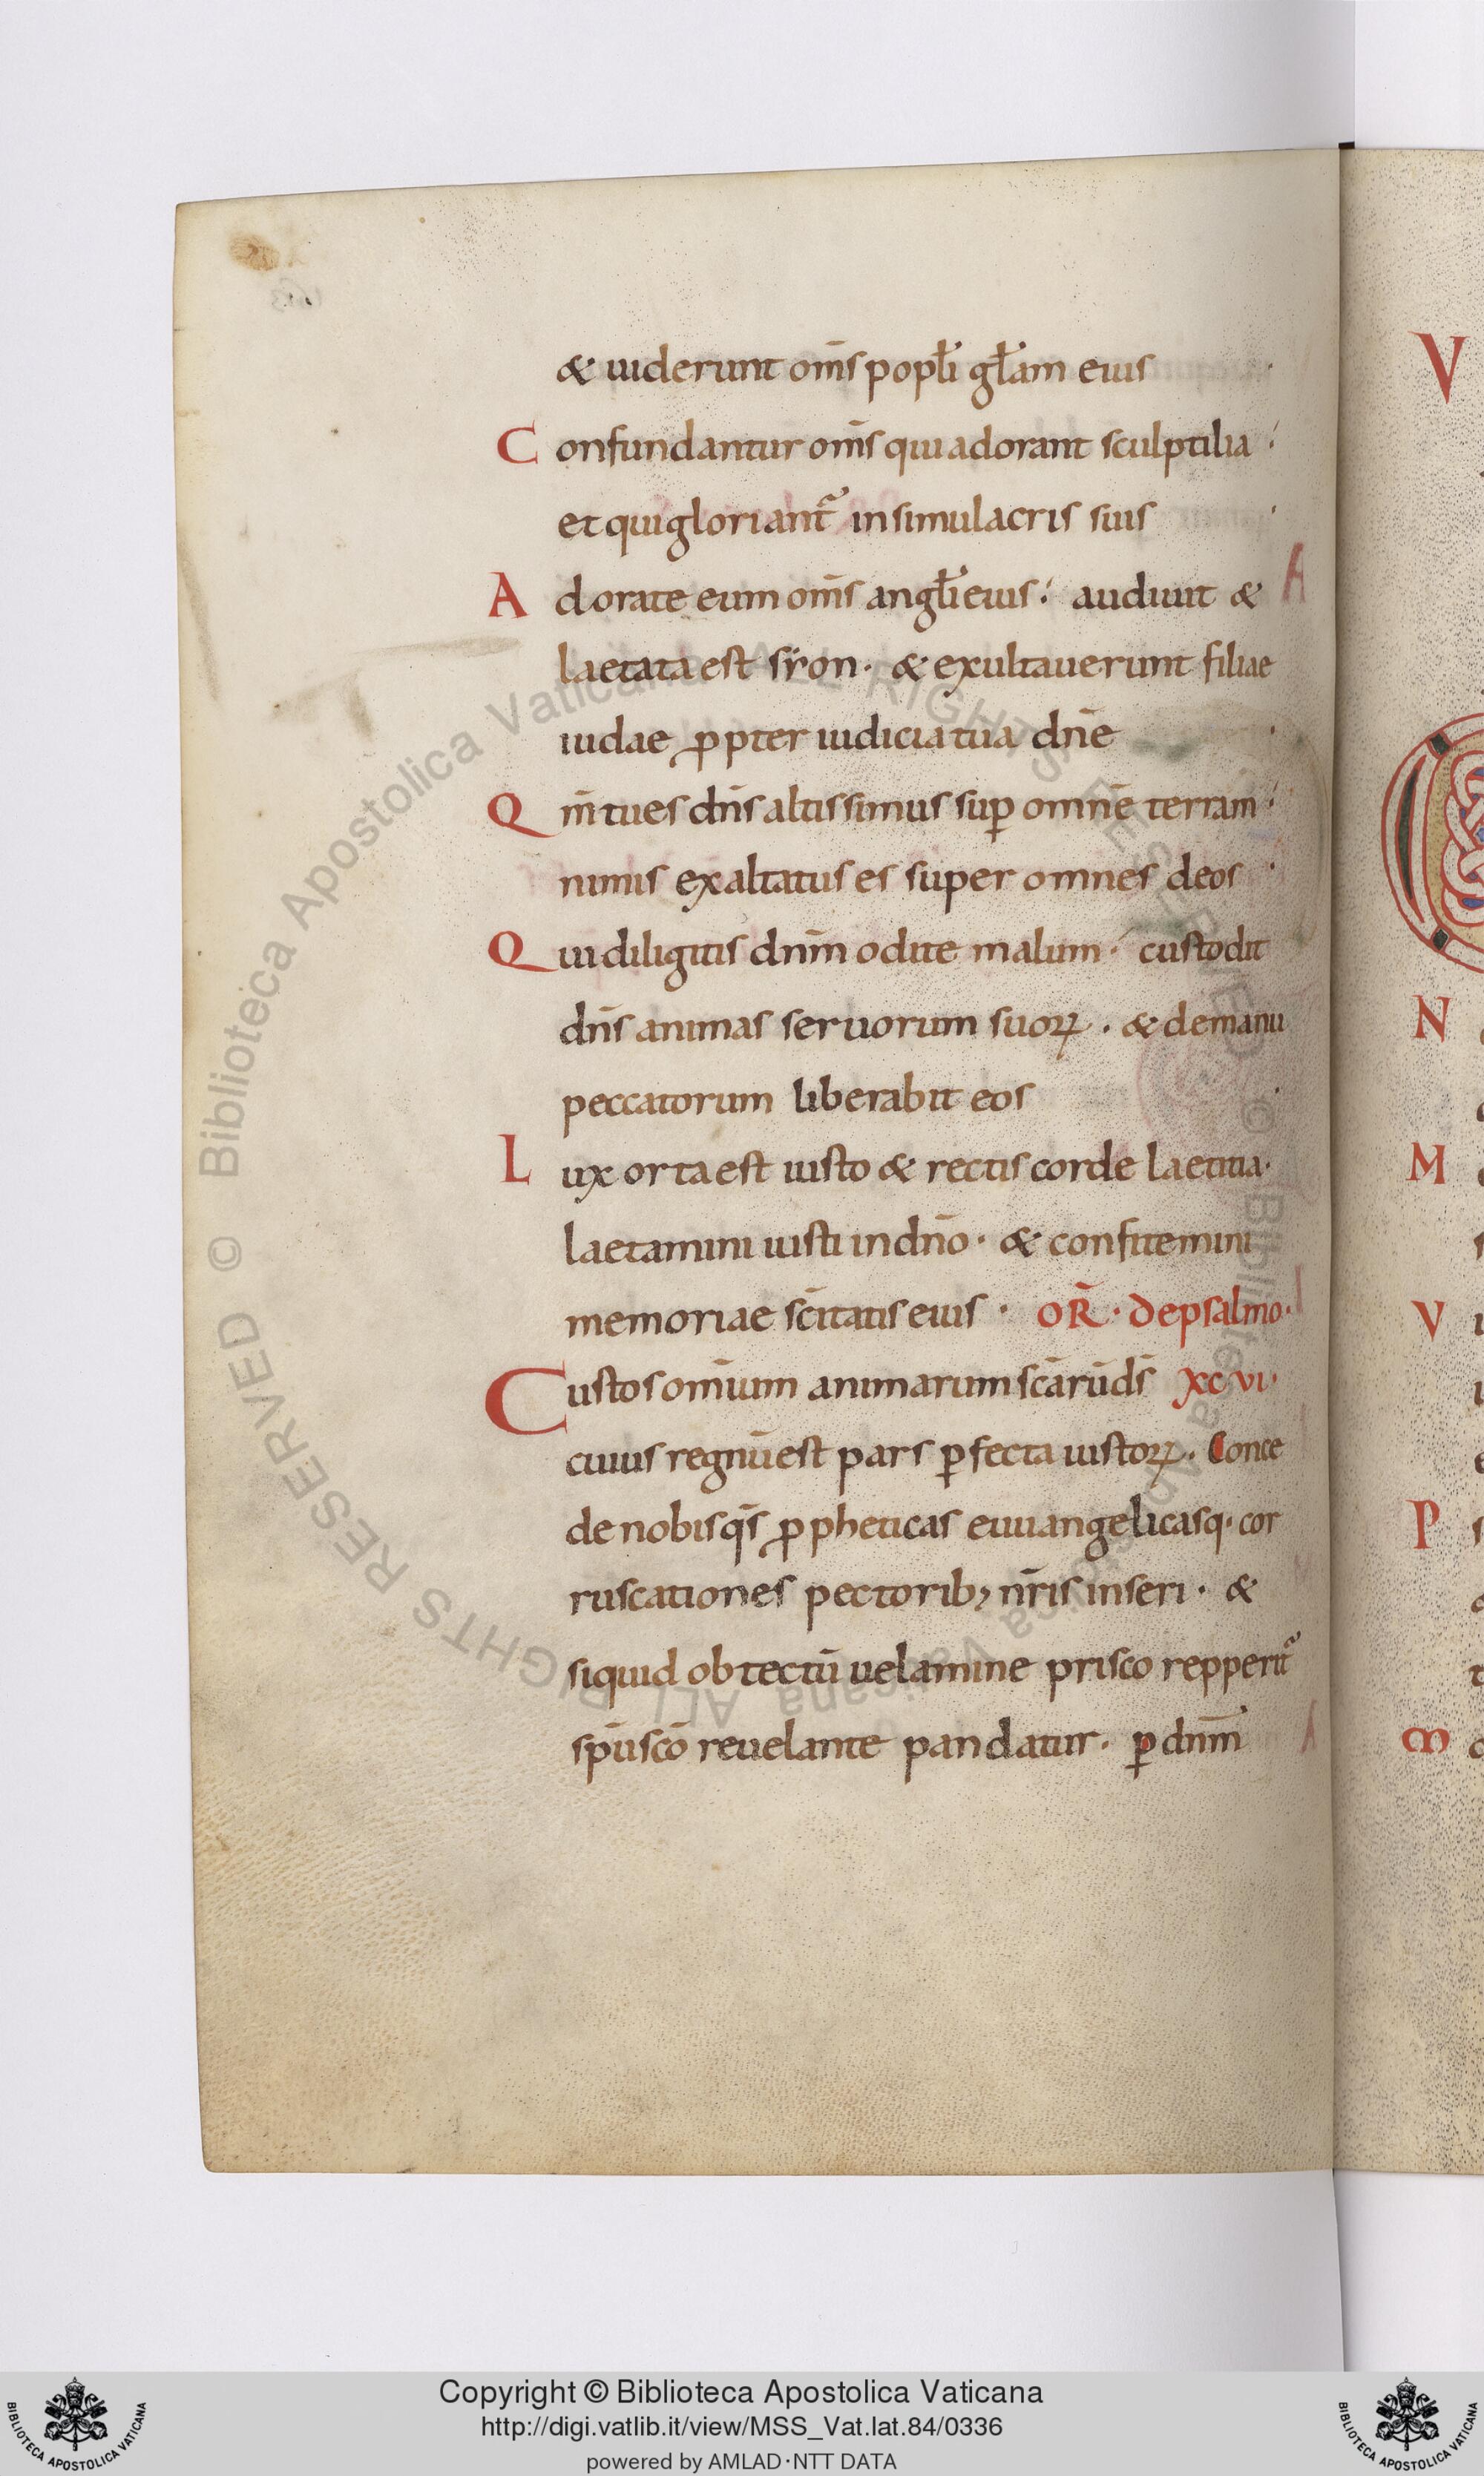 & uiderunt om̄s popłi głam eius
Confundantur om̄s qui adorant sculptilia
et qui gloriant᷑ in simulacris suis
Adorate eum om̄s angłi eius: audiuit &
laetata est sẏon · & exultauerunt filiae
iudae ꝓpter iudicia tua dn̄e
Qm̄ tu es dn̄s altissimus suꝑ omnē terram
nimis exaltatus es super omnes deos
Qui diligitis dn̄m odite malum · custodit
dn̄s animas seruorum suoꝝ . & de manu
peccatorum liberabit eos
Lux orta est iusto & rectis corde laetitia·
laetamini iusti in dn̄o · & confitemini
memoriae sc̄itatis eius · OR̄ · de psalmo·
Custos om̄ium animarum sc̄arū ds̄ xcvi·
cuius regnū est pars ꝑfecta iustoꝝ . Conce
de nobis qs̄ ꝓpheticas euuangelicasq· cor
ruscationes pectorib; nr̄is inseri · &
siquid obtectū uelamine prisco repperit᷑
sp̄u sc̄o reuelante pandatur · ꝑ dn̄m
V
N
M
V
P
M
© Biblioteca Apostolica Vaticana ALL RIGHTS RESERVED © Biblioteca Apostolica Vaticana ALL RIGHTS RESERVED
Copyright © Biblioteca Apostolica Vaticana
http://digi.vatlib.it/view/MSS_Vat.lat.84/0336
powered by AMLAD·NTT DATA
BIBLIOTECA APOSTOLICA VATICANA
BIBLIOTECA APOSTOLICA VATICANA